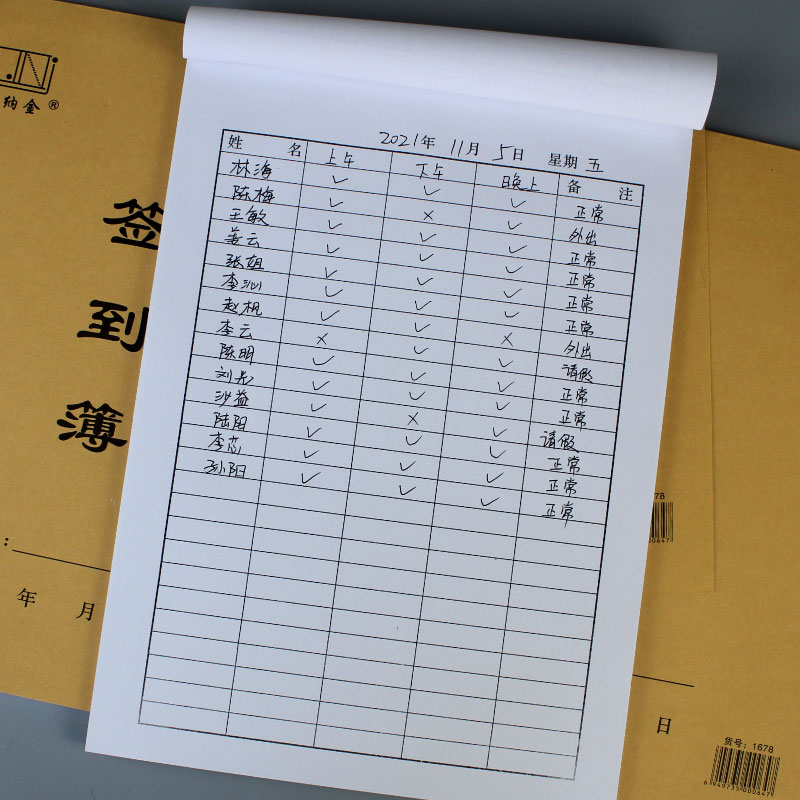 纳金®
签到簿
2021年 11月 5日 星期 五
姓名 上午 下午 晚上 备注
林海 ✓ ✓ ✓ 正常
陈梅 ✓ × ✓ 外出
王敏 ✓ ✓ ✓ 正常
姜云 ✓ ✓ ✓ 正常
张姐 ✓ ✓ ✓ 正常
李沁 ✓ ✓ ✓ 正常
赵枫 ✓ ✓ × 外出
李云 × ✓ ✓ 请假
陈明 ✓ ✓ ✓ 正常
刘光 ✓ ✓ ✓ 正常
沙益 ✓ × ✓ 请假
陆阳 ✓ ✓ ✓ 正常
李芯 ✓ ✓ ✓ 正常
孙阳 ✓ ✓ ✓ 正常
:
年 月
日
货号: 1678
6949735000647